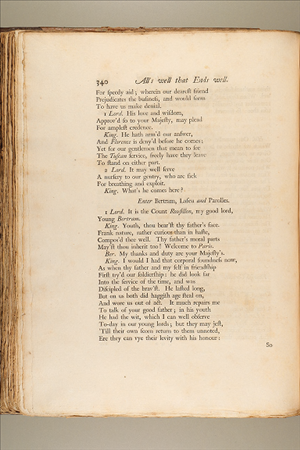 340 All's well that Ends well.
For speedy aid; wherein our dearest friend
Prejudicates the business, and would seem
To have us make denial.
1 Lord. His love and wisdom,
Approv'd so to your Majesty, may plead
For amplest credence.
King. He hath arm'd our answer,
And Florence is deny'd before he comes:
Yet for our gentlemen that mean to see
The Tuscan service, freely have they leave
To stand on either part.
2 Lord. It may well serve
A nursery to our gentry, who are sick
For breathing and exploit.
King. What's he comes here?
Enter Bertram, Lafeu and Parolles.
1 Lord. It is the Count Rousillon, my good lord,
Young Bertram.
King. Youth, thou bear'st thy father's face.
Frank nature, rather curious than in haste,
Compos'd thee well. Thy father's moral parts
May'st thou inherit too! Welcome to Paris.
Ber. My thanks and duty are your Majesty's.
King. I would I had that corporal soundness now,
As when thy father and my self in friendship
First try'd our soldiership: he did look far
Into the service of the time, and was
Discipled of the brav'st. He lasted long,
But on us both did haggish age steal on,
And wore us out of act. It much repairs me
To talk of your good father; in his youth
He had the wit, which I can well observe
To-day in our young lords; but they may jest,
'Till their own scorn return to them unnoted,
Ere they can vye their levity with his honour:
So